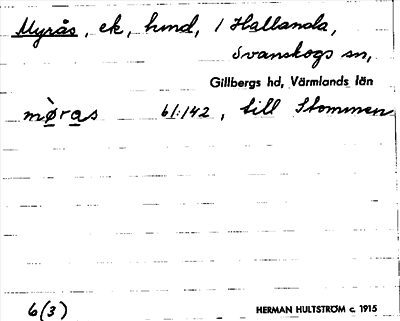 Myrås, ek, hmd, / Hallanda,
Svanskogs sn,
Gillbergs hd, Värmlands län
mòras 61:142, till Stommen
6(3)
HERMAN HULTSTRÖM c. 1915